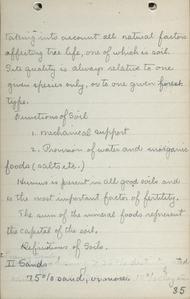 taking into account all natural factors
affecting tree life, one of which is soil.
Its quality is always relative to one
given species only, or to one given forest
type.
Functions of Soil
1. mechanical support
2. Provision of water and inorganic
foods (salts etc.)
Humus is present in all good soils and
is the most important factor of fertility.
The sum of the mineral foods represent
the capital of the soil.
Definitions of Soils.
II Sands
75% sand, or more
35